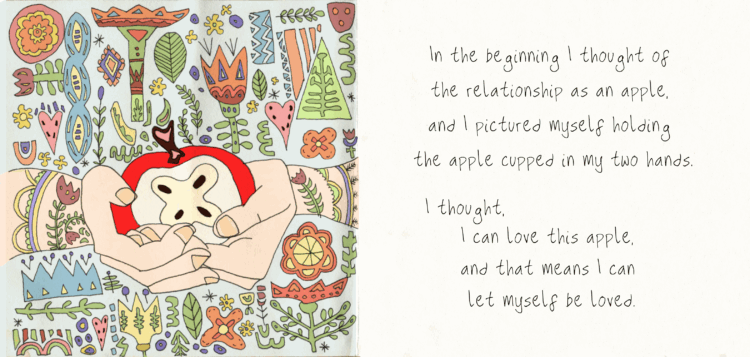 In the beginning I thought of
the relationship as an apple,
and I pictured myself holding
the apple cupped in my two hands.
I thought,
I can love this apple,
and that means I can
let myself be loved.